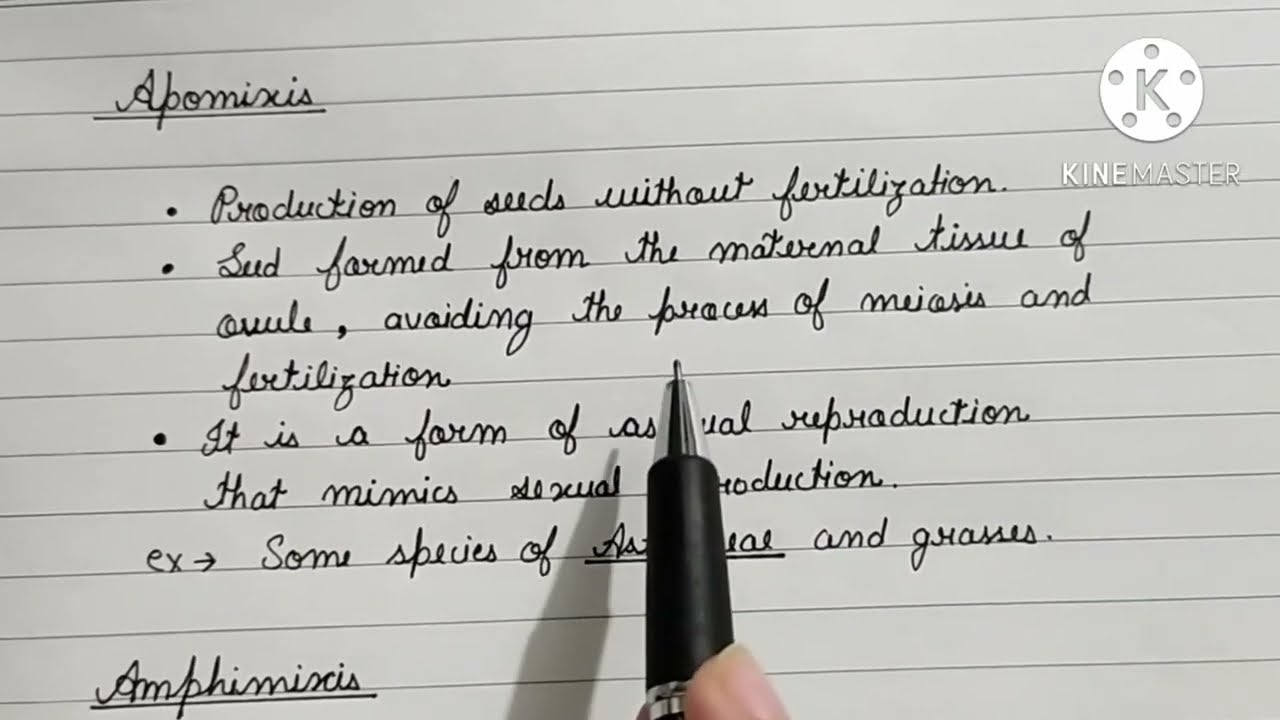 Apomixis
K
KINEMASTER
• Production of seeds without fertilization.
• Seed formed from the maternal tissue of
ovule, avoiding the process of meiosis and
fertilization
• It is a form of as ual reproduction
that mimics sexual roduction.
ex → Some species of As eae and grasses.
Amphimixis